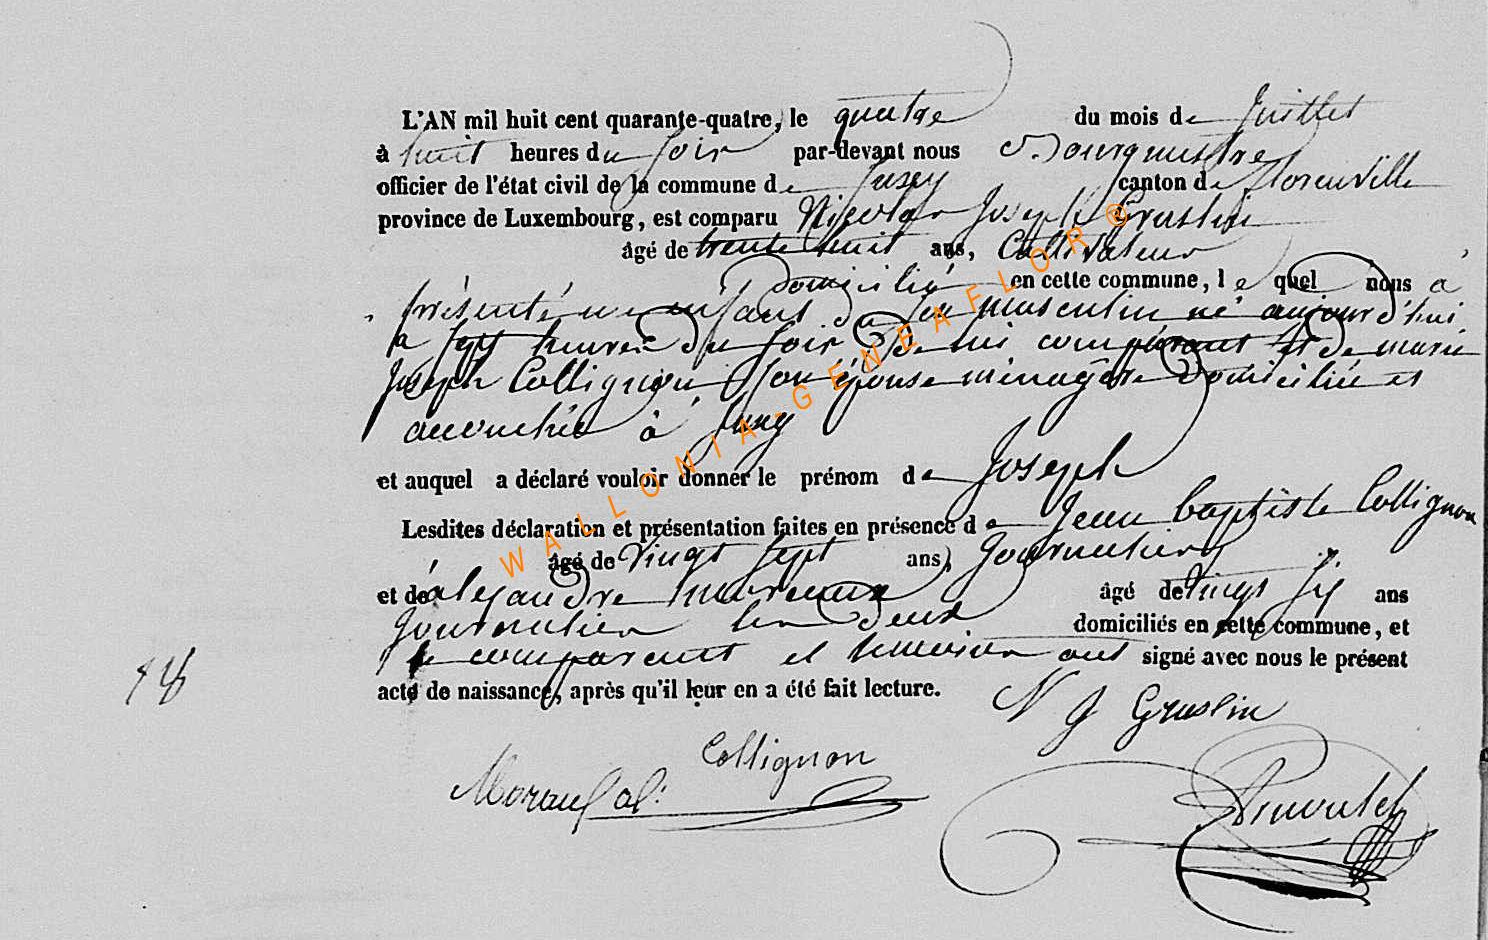 L'AN mil huit cent quarante-quatre, le quatre du mois de Juillet
à huit heures du soir par-devant nous Bourguestre
officier de l'état civil de la commune de Suxy canton de florenville
province de Luxembourg, est comparu Nicolas Joseph Gruslin
âgé de trente huit ans, Cultivateur
Domicilié en cette commune, le quel nous à
présenté un enfant du sex masculin né aujourd'hui
a sept heures du soir de lui comparant et de marie
Joseph Collignon son épouse ménagère Domiciliée et
accouchée à Suxy
et auquel a déclaré vouloir donner le prénom de Joseph
Lesdites déclaration et présentation faites en présence de Jean baptiste Collignon
âgé de Vingt sept ans, Journalier
et de alexandre moreaux âgé de vingt six ans
Journalier les deux domiciliés en cette commune, et
le comparant et témoins ont signé avec nous le présent
acte de naissance, après qu'il leur en a été fait lecture.
N J Gruslin
Collignon
Moraux al:
WALLONIA-GENEAFLOR®